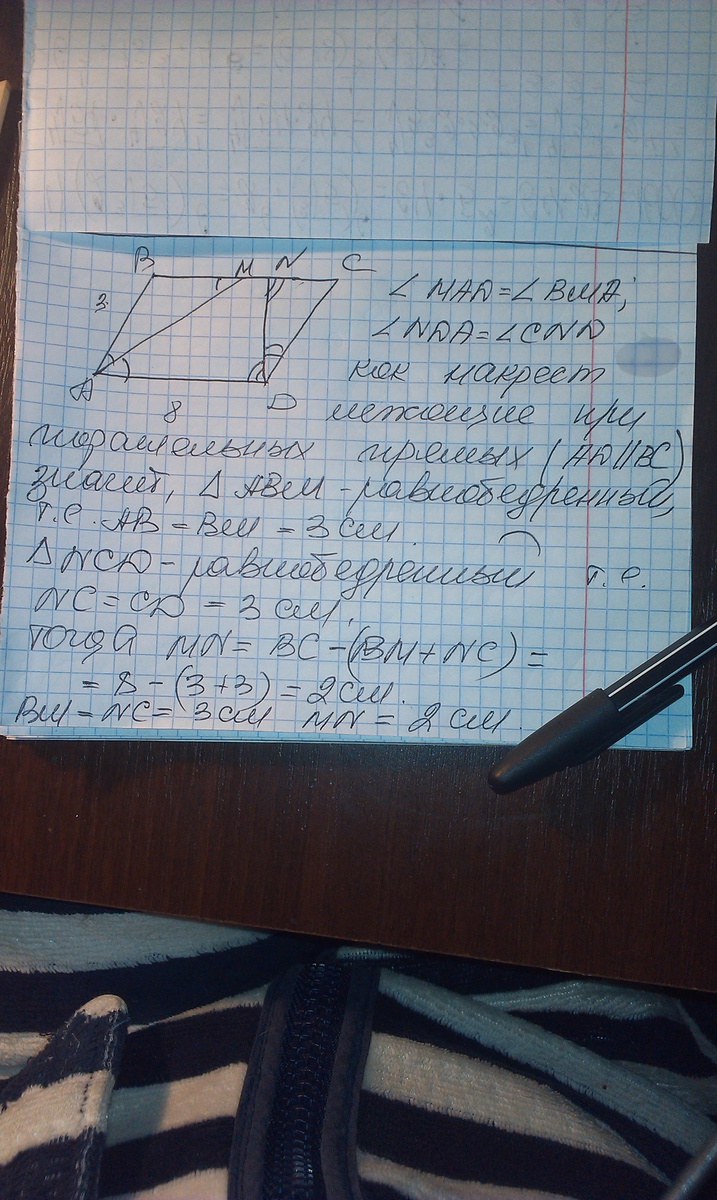 B M N C
3
A 8 D
∠ MAD = ∠ BMA;
∠ NDA = ∠ CND
как накрест
лежащие при
паралельных прямых (AD||BC)
значит, Δ ABM - равнобедренный,
т.е. AB = BM = 3 см.
Δ NCD - равнобедренный т.е.
NC = CD = 3 см,
тогда MN = BC - (BM + NC) =
= 8 - (3+3) = 2 см.
BM = NC = 3 см MN = 2 см.